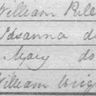 William
Susanna d
Mary do
William Wrig